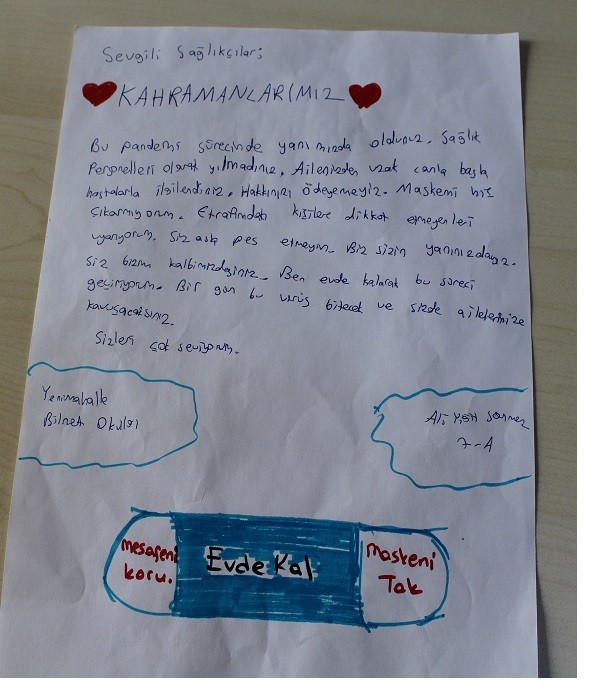 Sevgili Sağlıkçılar;
KAHRAMANLARIMIZ
Bu pandemi sürecinde yanımızda oldunuz. Sağlık
Personelleri olarak yılmadınız. Ailenizden uzak canla başla
hastalarla ilgilendiniz. Hakkınızı ödeyemeyiz. Maskemi hiç
çıkarmıyorum. Etrafımdaki kişilere dikkat etmeyenleri
uyarıyorum. Siz asla pes etmeyin. Biz sizin yanınızdayız.
Siz bizim kalbimizdesiniz. Ben evde kalarak bu süreci
geçiriyorum. Bir gün bu virüs bitecek ve sizde ailelerinize
kavuşacaksınız.
Sizleri çok seviyorum.
Yenimahalle
Bilnet Okulları
Ali
7-A
mesafeni
koru.
Evde Kal
maskeni
Tak